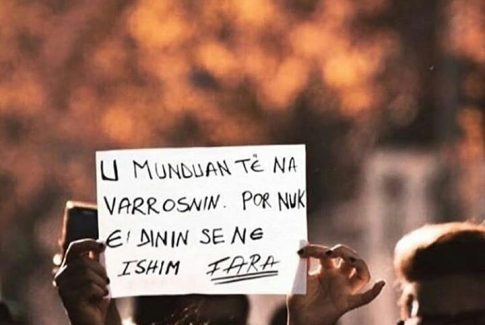 U MUNDUAN TË NA
VARROSNIN. POR NUK
E DININ SE NE
ISHIM FARA